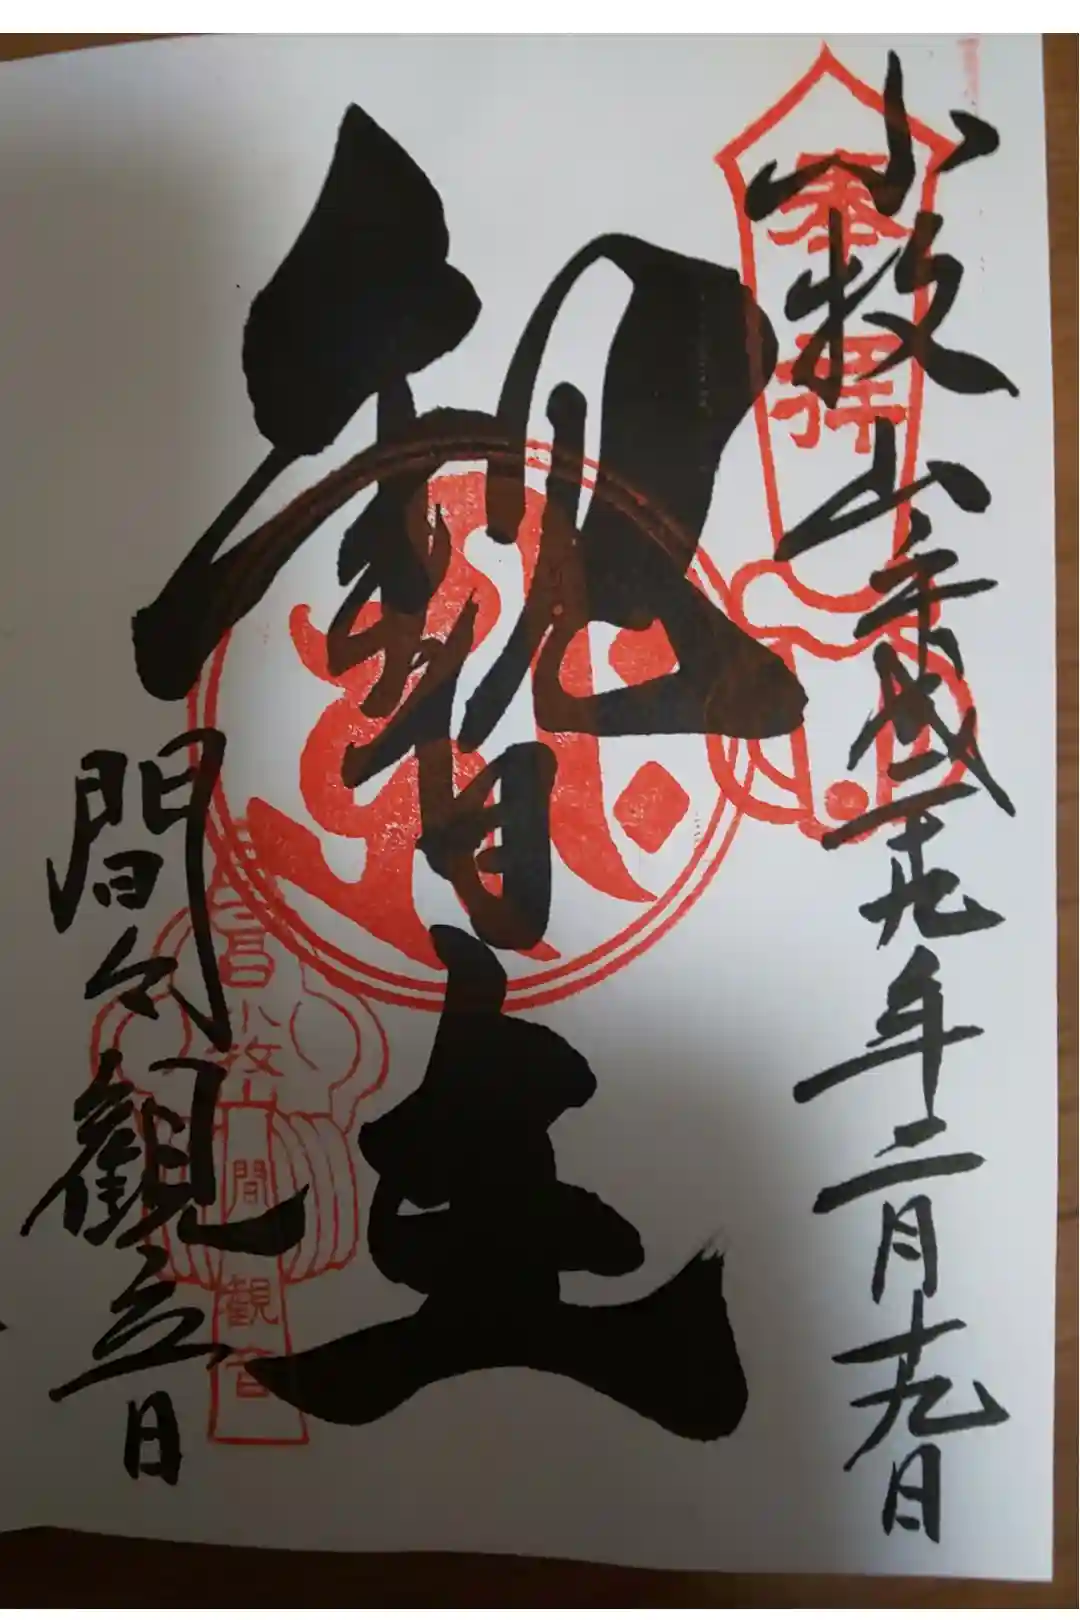 奉拝
小牧山 平成二十九年二月十九日
観音
間々観音
小牧山
間
観音